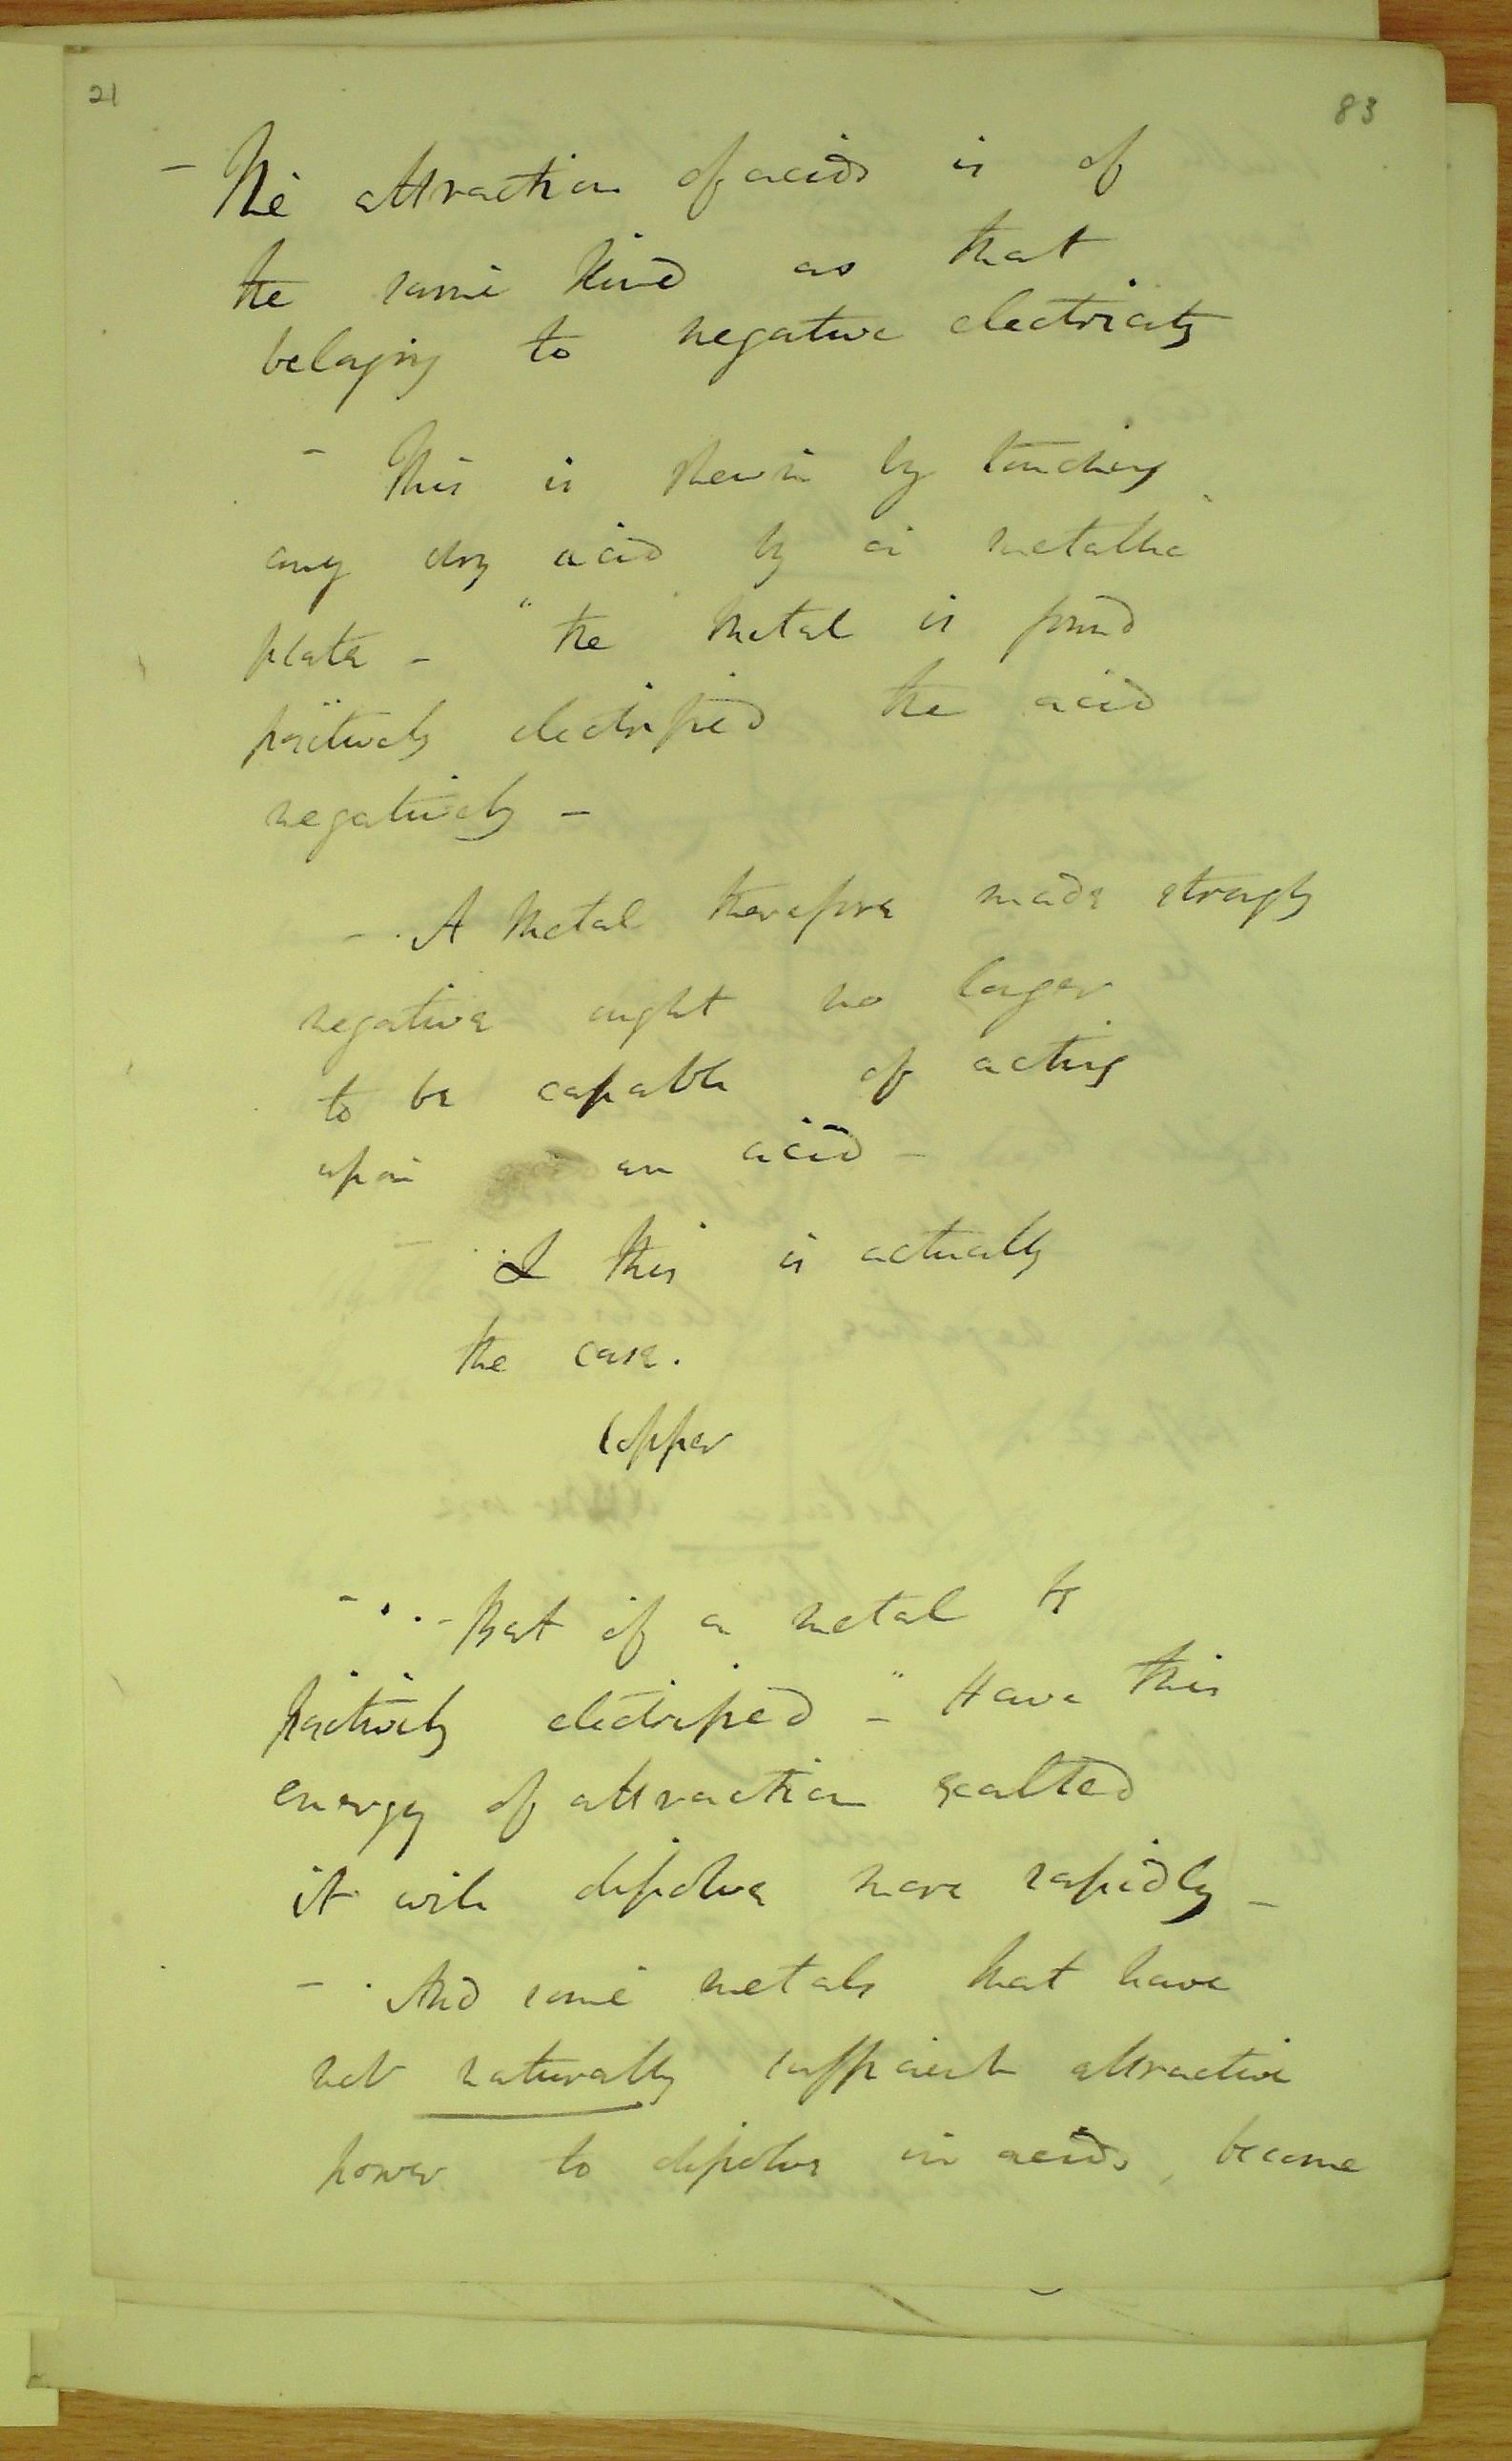 21
83
- The attraction of acids is of
the same kind as that
belonging to negative electricity
- This is shewn by touching
any dry acid by a metallic
plate - the Metal is found
positively electrified the acid
negatively -
- A Metal therefore made strongly
negative ought no longer
to be capable of acting
upon an acid -
& this is actually
the case.
Copper
- But if a metal be
positively electrified - Have this
energy of attraction exalted
it will dissolve more rapidly -
- And some metals that have
not naturally sufficient attractive
power to dissolve in acids, become